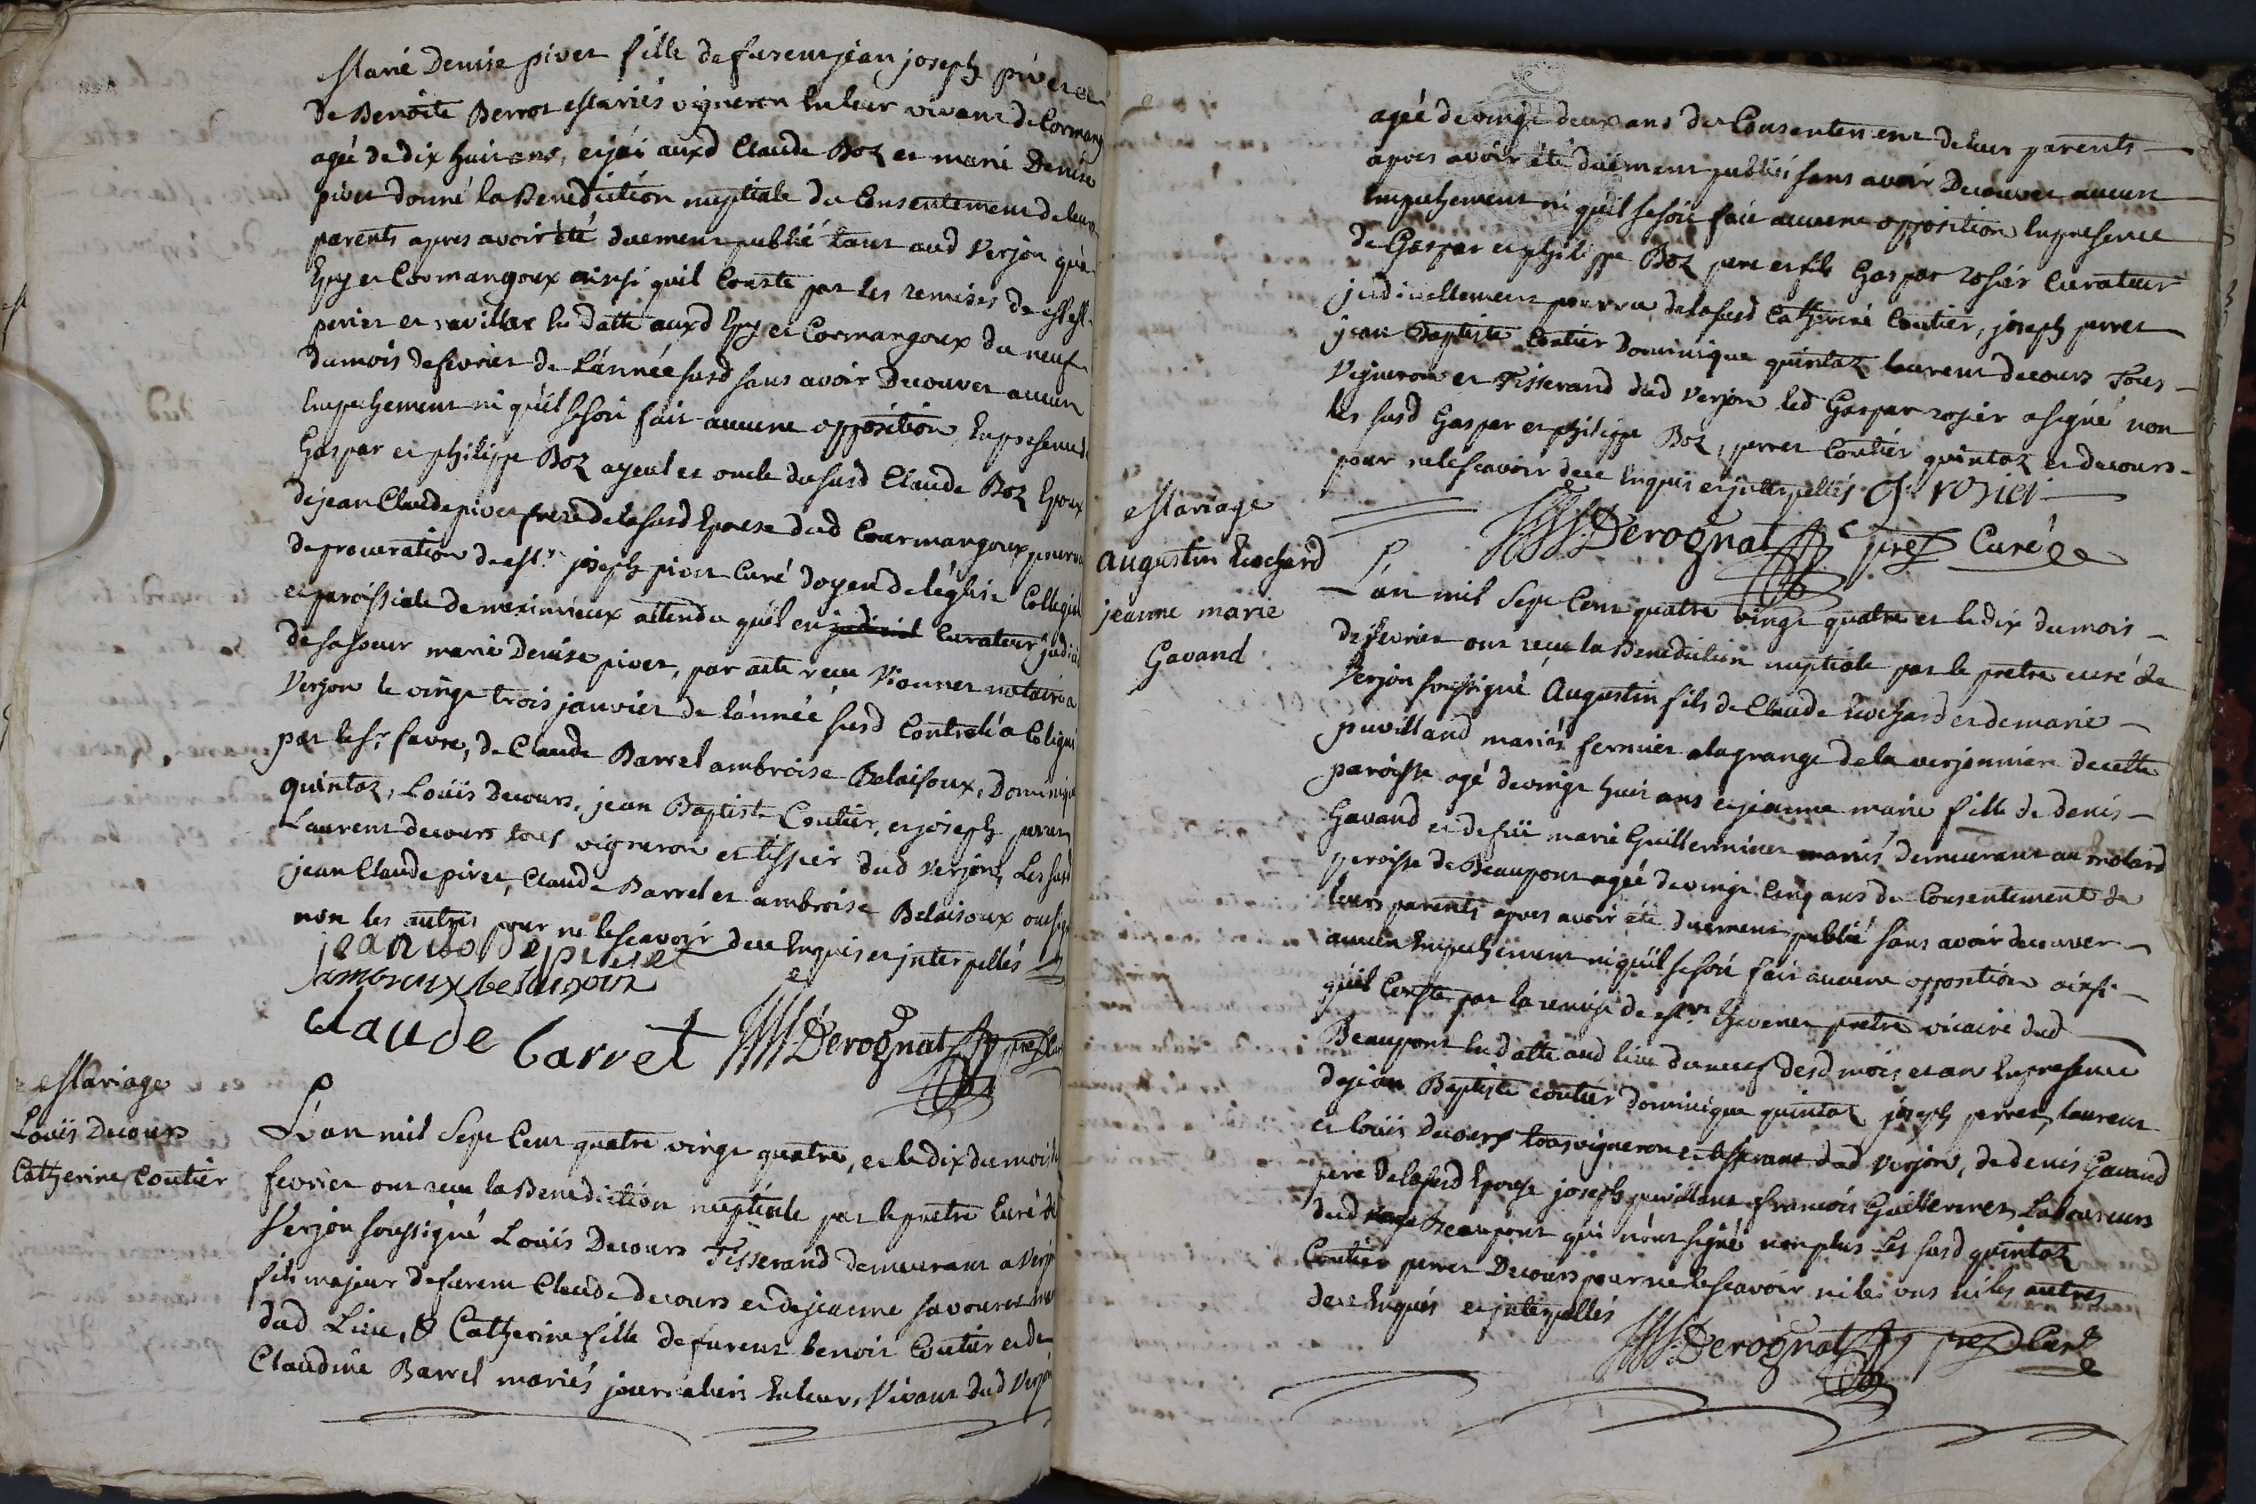 Marié Denise pivet fille de furent jean joseph pivet et
de Benoite Berrot Mariés vigneron en leur vivant de Cormang
agée de dix huit ans, et j'ai auxd Claude Boz et marié Denise
pivet donné la Benediction nuptiale du Consentement de leurs
parents apres avoir été duement publié tant aud Verjon qu'a
Epy et Cormangoux ainsi quil Conste par les remises de MM
perier et ravillax en datte auxd Epy et Cormangoux du neuf
du mois de fevrier de L'année susd sans avoir Decouvert aucun
Empechement ni qu'il se soit fait aucune opposition En presence de
Gaspar et philippe Boz ayeul et oncle du susd Claude Boz Epoux
de jean Claude pivet frere de la susd Epouse dud Courmangoux pourvu
de procuration de Mr. joseph pivet Curé doyen de l'église Collegial
et paroissiale de meximieux attendu qu'il est judiciel Curateur judiciel
de sa soeur marie Denise pivet, par acte recu Vionnet notaire a
Verjon le vingt trois janvier de l'année susd Controlé a Coligni
par le Sr. favre, de Claude Barrel ambroise Belaisoux, Dominique
quintaz, Loüis Decours, jean Baptiste Coutier, et joseph perret
Laurent decours tous vigneron et tissier dud Verjon, Les susd
jean Claude pivet, Claude Barrel et ambroise Belaisoux ont signé
non les autres pour ne le scavoir de ce Enquis et jnterpellés
claude barret Derognat pre Curé
Mariage
Loüis Decours
Catherine Coutier
L'an mil Sept Cent quatre vingt quatre, et le dix du mois de
fevrier ont recu la Benediction nuptiale par le pretre Curé de
Verjon soussigné Loüis Decours Tisserand demeurant a Verjon
fils majeur de furent Claude decours et de jeanne savouret
dud Lieu, & Catherine fille de furent benoit Coutier et de
Claudine Barrel mariés journaliers En leurs Vivant dud Verjon
agée de vingt deux ans du Consentement de leurs parents
apres avoir été duement publiés sans avoir Decouvert aucun
Empechement ni qu'il se soit fait aucune opposition En presence
de Gaspar et philippe Boz pere et fils Gaspar rosier Curateur
judiciellement pourvu de la susd Catherine Coutier, joseph perret
jean Baptiste Coutier Dominique quintaz laurent decours Tous
Vigneron et Tisserand dud Verjon led Gaspar rosier a signé non
les susd Gaspar et philippe Boz, perret Coutier quintaz et decours
pour ne le scavoir de ce Enquis et jnterpellés G rosier
Derognat pre Curé
Mariage
Augustin Ecochard
jeanne marie
Gavand
L'an mil Sept Cent quatre vingt quatre et le dix du mois
de fevrier ont recu la Benediction nuptiale par le pretre curé de
Verjon soussigné Augustin fils de Claude Ecochard et de marie
puvilland mariés fermier a la grange de la verjonniere de cette
paroisse agé de vingt huit ans et jeanne marie fille de denis
Gavand et de füe marie Guillerminet mariés demeurant au molard
paroisse de Beaupont agée de vingt Cinq ans du Consentement de
leurs parents apres avoir été duement publié sans avoir decouvert
aucun Empechement ni qu'il se soit fait aucune opposition ainsi
qu'il Conste par la remise de Mr Thevenet pretre vicaire dud
Beaupont En datte aud lieu du neuf desd mois et an En presence
de jean Baptiste coutier dominique quintaz joseph perret, laurent
et loüis Decours tous vigneron et tisserant dud Verjon, de denis Gavand
pere de la susd Epouse joseph puvilland francois Guillerminet Laboureurs
dud Beaupont qui n'ont signé non plus Les susd quintaz
Coutier perret Decours pour ne le scavoir ni les uns ni les autres
de ce Enquis et jnterpellés
Derognat pre Curé